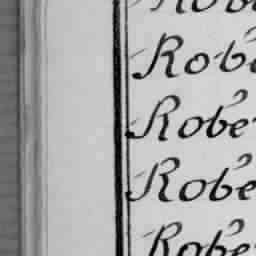 Robe
Robe
Robe
Robe
Robe